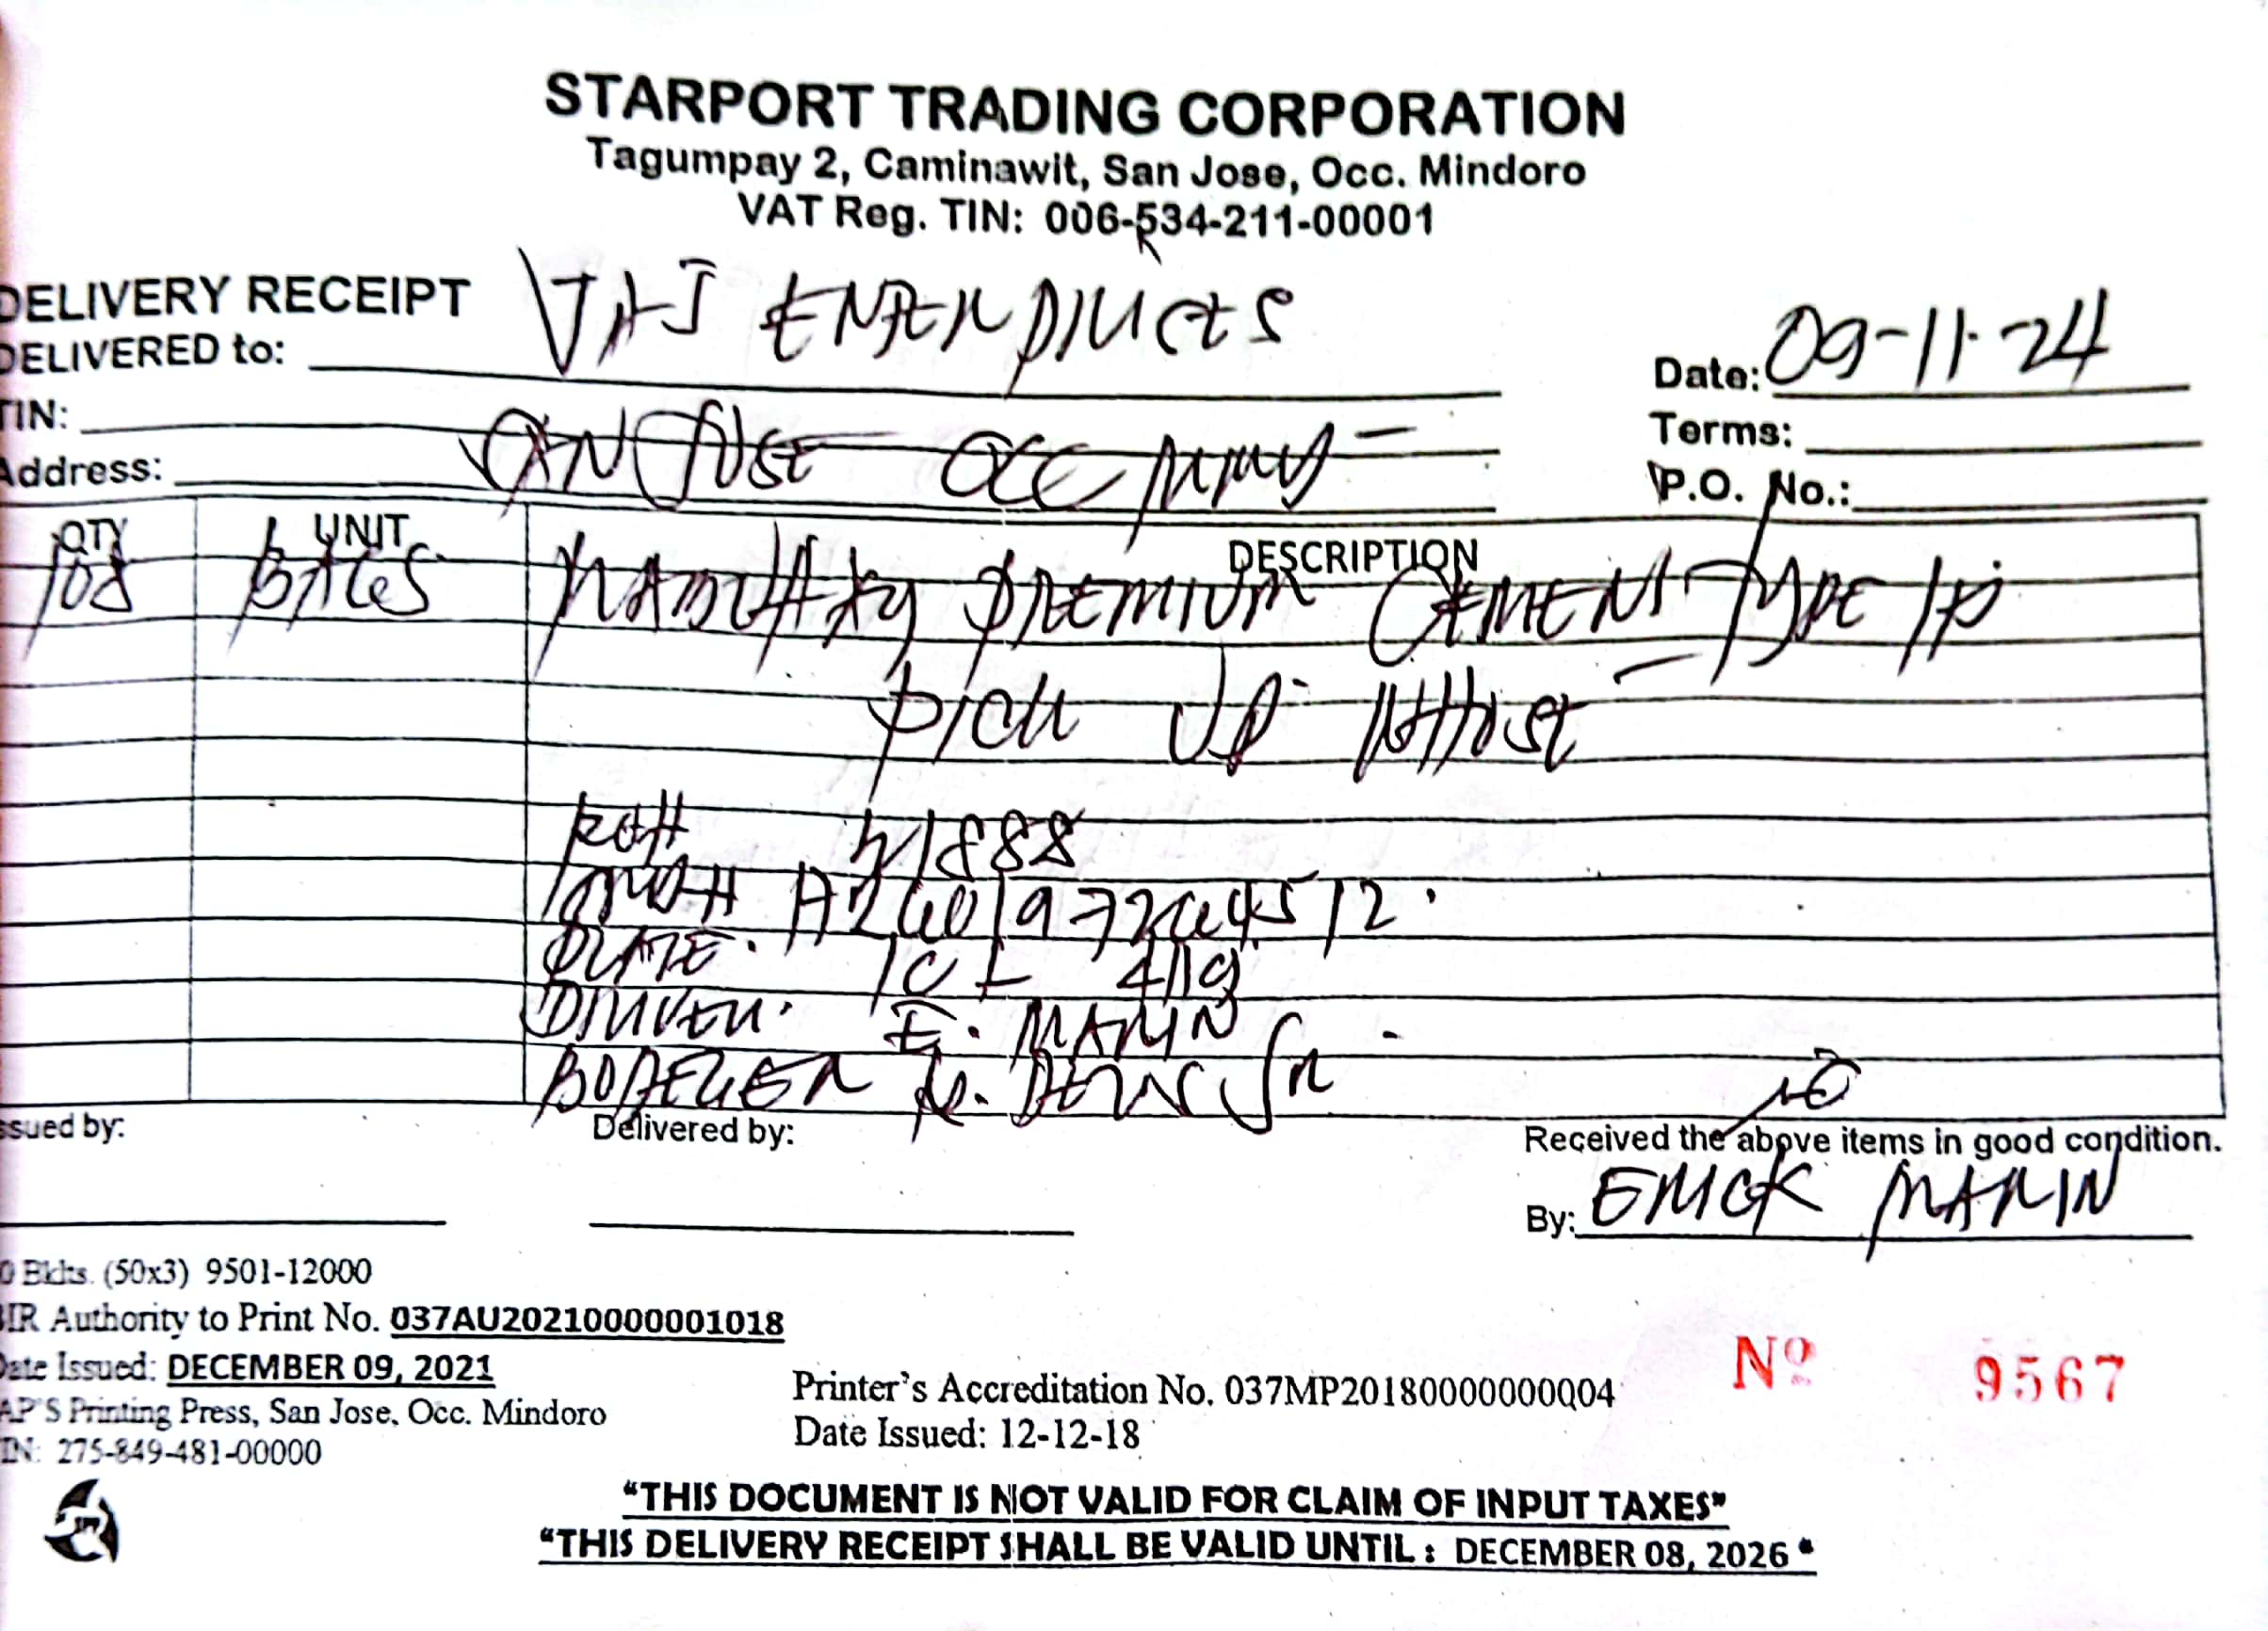 STARPORT TRADING CORPORATION
Tagumpay 2, Caminawit, San Jose, Occ. Mindoro
VAT Reg. TIN: 006-534-211-00001
DELIVERY RECEIPT
DELIVERED to: ENTERPRICES
Date: 09-11-24
TIN:
Terms:
Address: SAN JOSE OCC
P.O. No.:
QTY UNIT DESCRIPTION
108 BAGS PREMIUM CEMENT TYPE 1P
PICK UP
31888
PLATE. 419
DRIVER. E. MARIN
BODEGER Jr
ssued by:
Delivered by:
Received the above items in good condition.
By: ERICK MARIN
0 Bklts. (50x3) 9501-12000
BIR Authority to Print No. 037AU20210000001018
Date Issued: DECEMBER 09, 2021
AP'S Printing Press, San Jose, Occ. Mindoro
TIN: 275-849-481-00000
Printer's Accreditation No. 037MP20180000000004
Date Issued: 12-12-18
Nº 9567
"THIS DOCUMENT IS NOT VALID FOR CLAIM OF INPUT TAXES"
"THIS DELIVERY RECEIPT SHALL BE VALID UNTIL : DECEMBER 08, 2026"